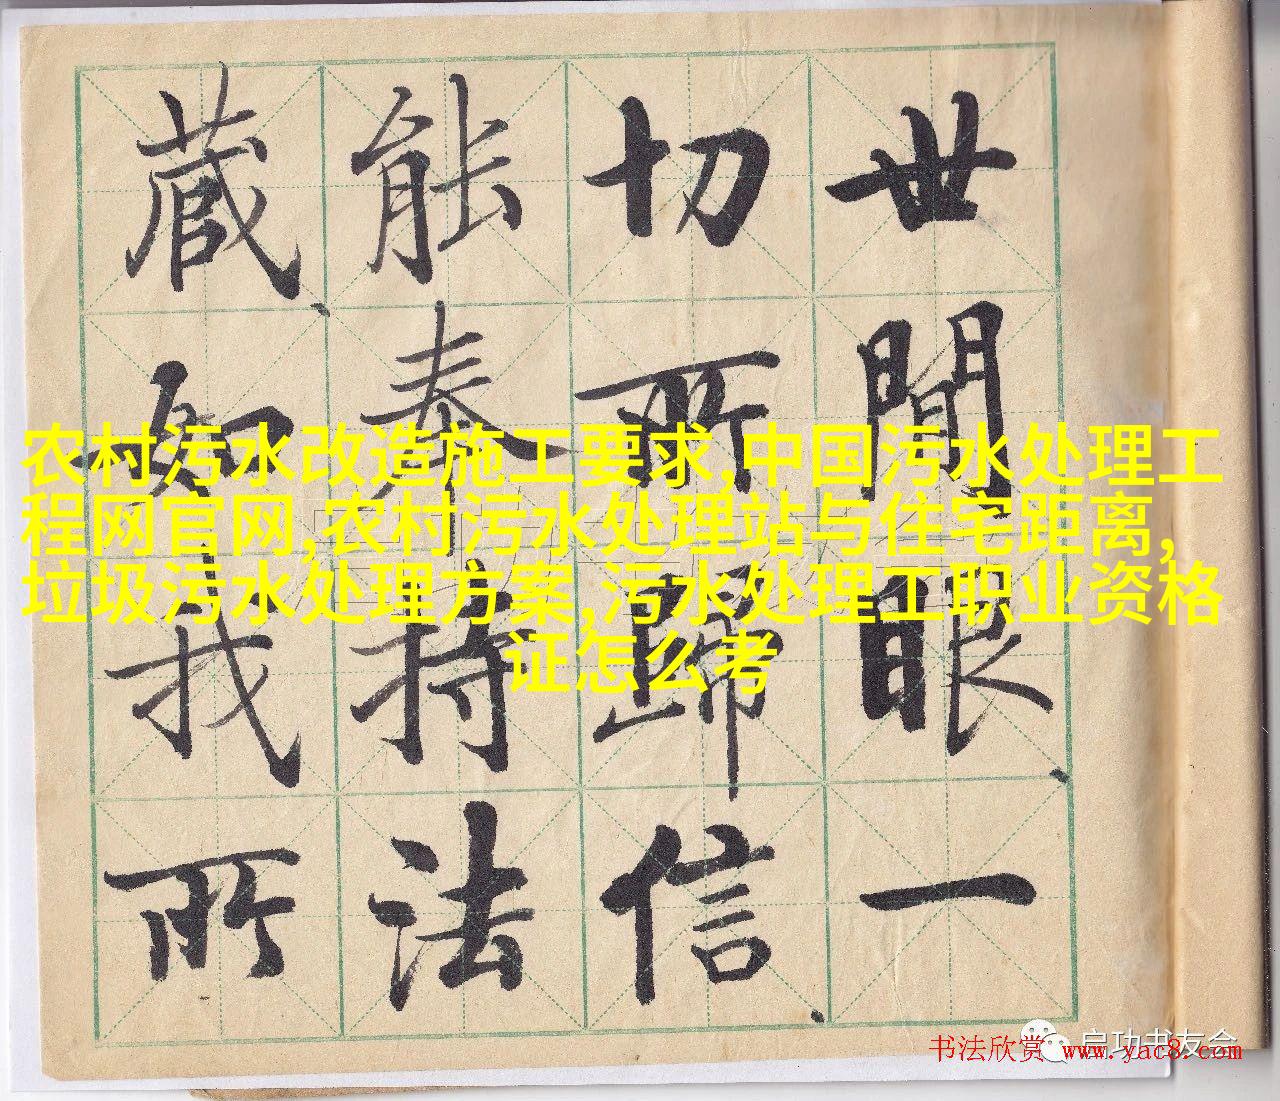 世間眼一
切所歸信
能奉持法
蔵如我所
农村污水改造施工要求,中国污水处理工
程网官网,农村污水处理站与住宅距离,
垃圾污水处理方案,污水处理工职业资格
证怎么考
启功书友会
书法欣赏 www.yac8.com